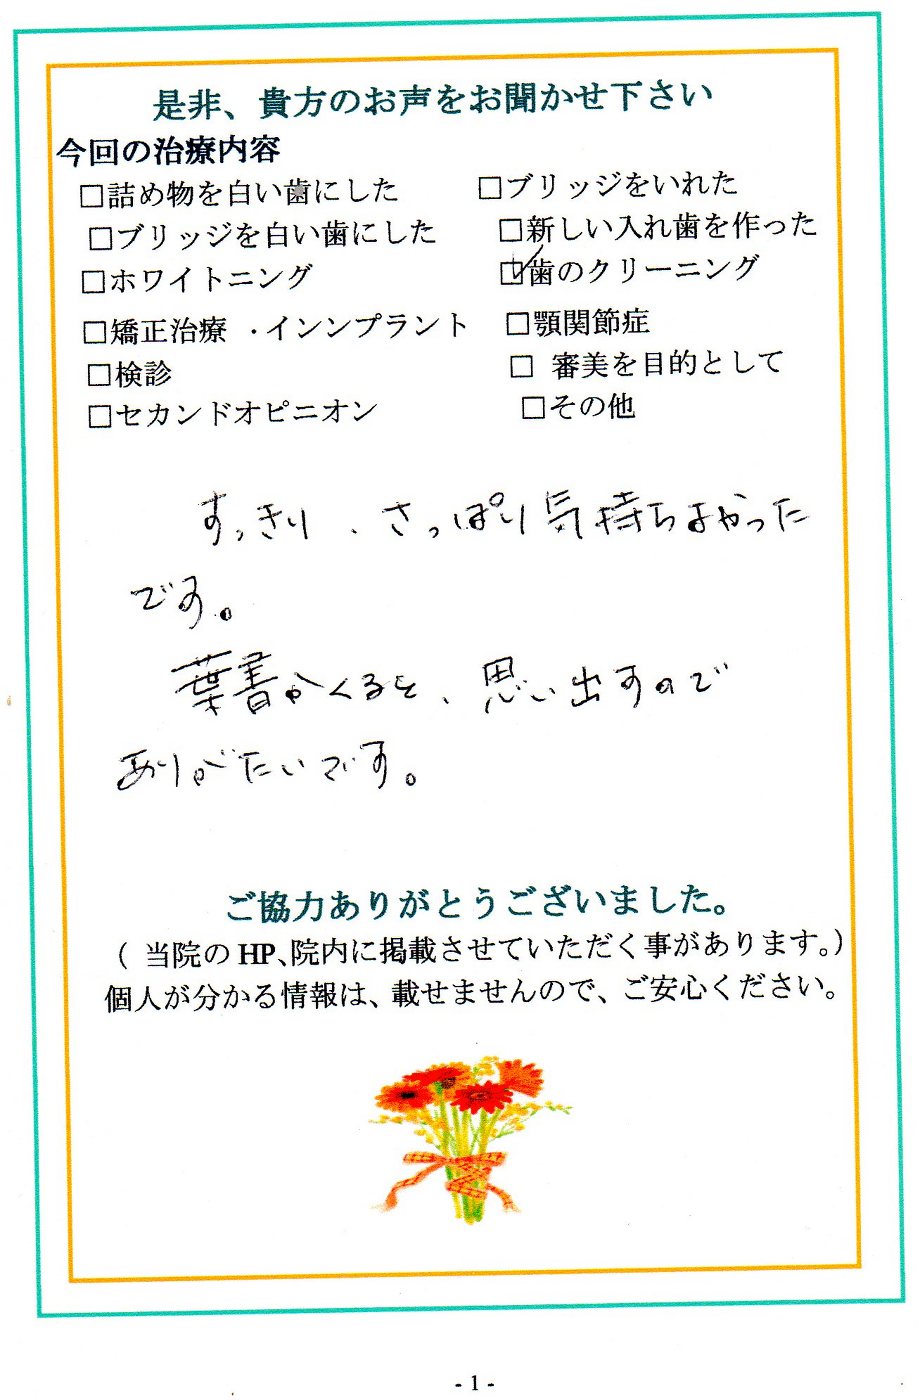 是非、貴方のお声をお聞かせ下さい
今回の治療内容
□詰め物を白い歯にした □ブリッジをいれた
□ブリッジを白い歯にした □新しい入れ歯を作った
□ホワイトニング ☑歯のクリーニング
□矯正治療 ・インンプラント □顎関節症
□検診 □ 審美を目的として
□セカンドオピニオン □その他
すっきり、さっぱり気持ちよかった
です。
葉書がくると、思い出すので
ありがたいです。
ご協力ありがとうございました。
( 当院の HP、院内に掲載させていただく事があります。)
個人が分かる情報は、載せませんので、ご安心ください。
- 1 -